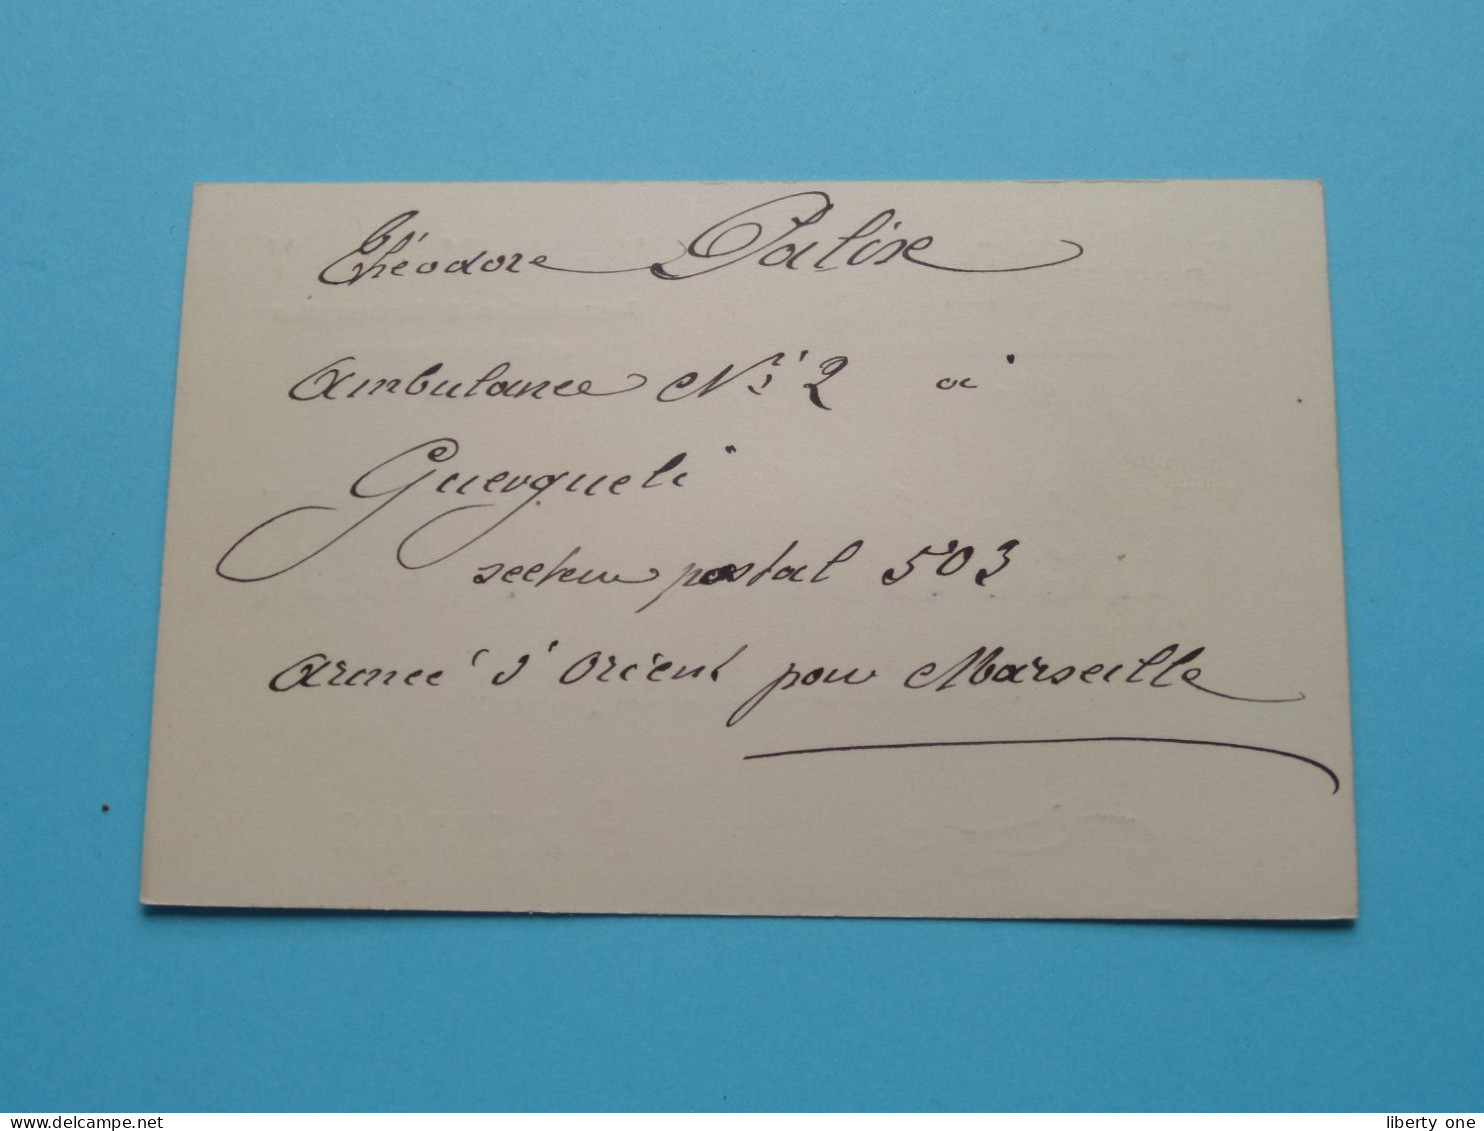 Théodore Palix
Ambulance N° 2 à
Guergueli
secteur postal 503
Armée d'Orient pour Marseille
www.delcampe.net
liberty one